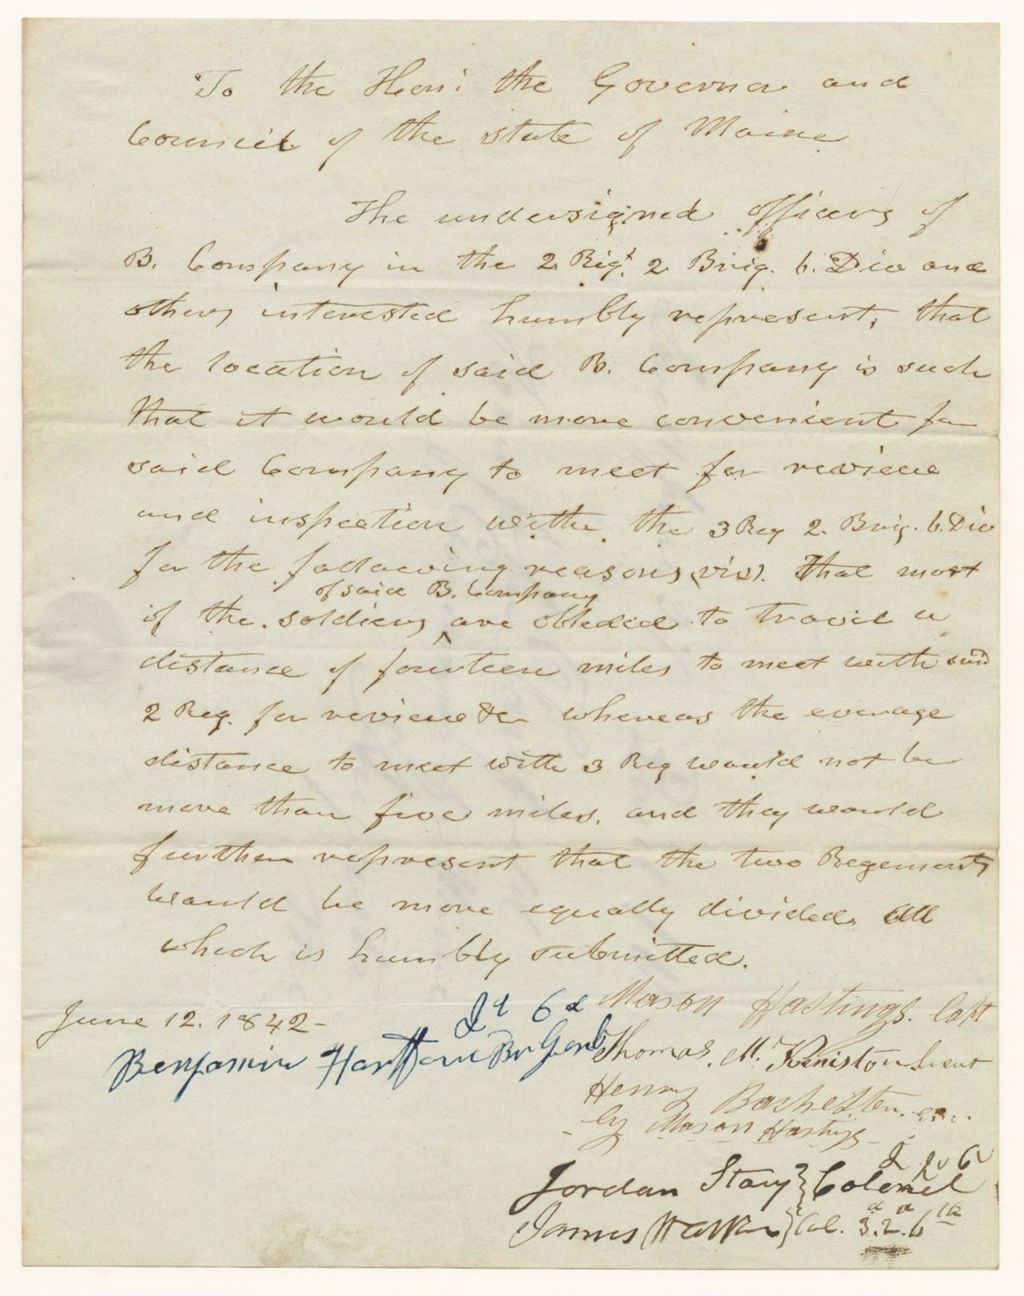 To the Hon: the Governor and
Council of the state of Maine
The undersigned officers of
B. Company in the 2. Rigt. 2 Brig. 6. Div and
others interested humbly represent, that
the location of said B. Company is such
that it would be more convenient for
said Company to meet for review
and inspection with the 3 Reg 2. Brig. 6. Div
for the following reasons (viz). That most
of said B. Company
of the soldiers ^ are obleded to travil a
distance of fourteen miles to meet with said
2 Reg. for review &c whereas the everage
distance to meet with 3 Reg would not be
more than five miles, and they would
further represent that the two Regements
would be more equally divided. All
which is humbly submitted.
June 12. 1842-
Mason Hastings. Capt
Benjamin Br Genl
6d
Thomas. M. Keniston Lieut
Henry Bachelder
by Mason Hastings
Jordan Stacy } Colonel
James Walker } Col. 3d. 2d. 6th